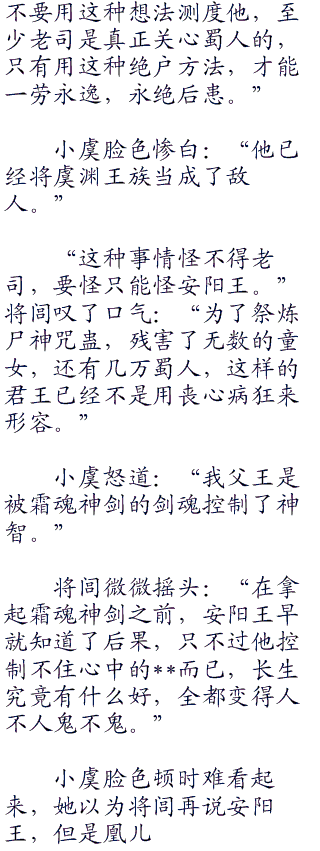 不要用这种想法测度他，至
少老司是真正关心蜀人的，
只有用这种绝户方法，才能
一劳永逸，永绝后患。”
小虞脸色惨白：“他已
经将虞渊王族当成了敌
人。”
“这种事情怪不得老
司，要怪只能怪安阳王。”
将闾叹了口气：“为了祭炼
尸神咒蛊，残害了无数的童
女，还有几万蜀人，这样的
君王已经不是用丧心病狂来
形容。”
小虞怒道：“我父王是
被霜魂神剑的剑魂控制了神
智。”
将闾微微摇头：“在拿
起霜魂神剑之前，安阳王早
就知道了后果，只不过他控
制不住心中的**而已，长生
究竟有什么好，全都变得人
不人鬼不鬼。”
小虞脸色顿时难看起
来，她以为将闾再说安阳
王，但是凰儿